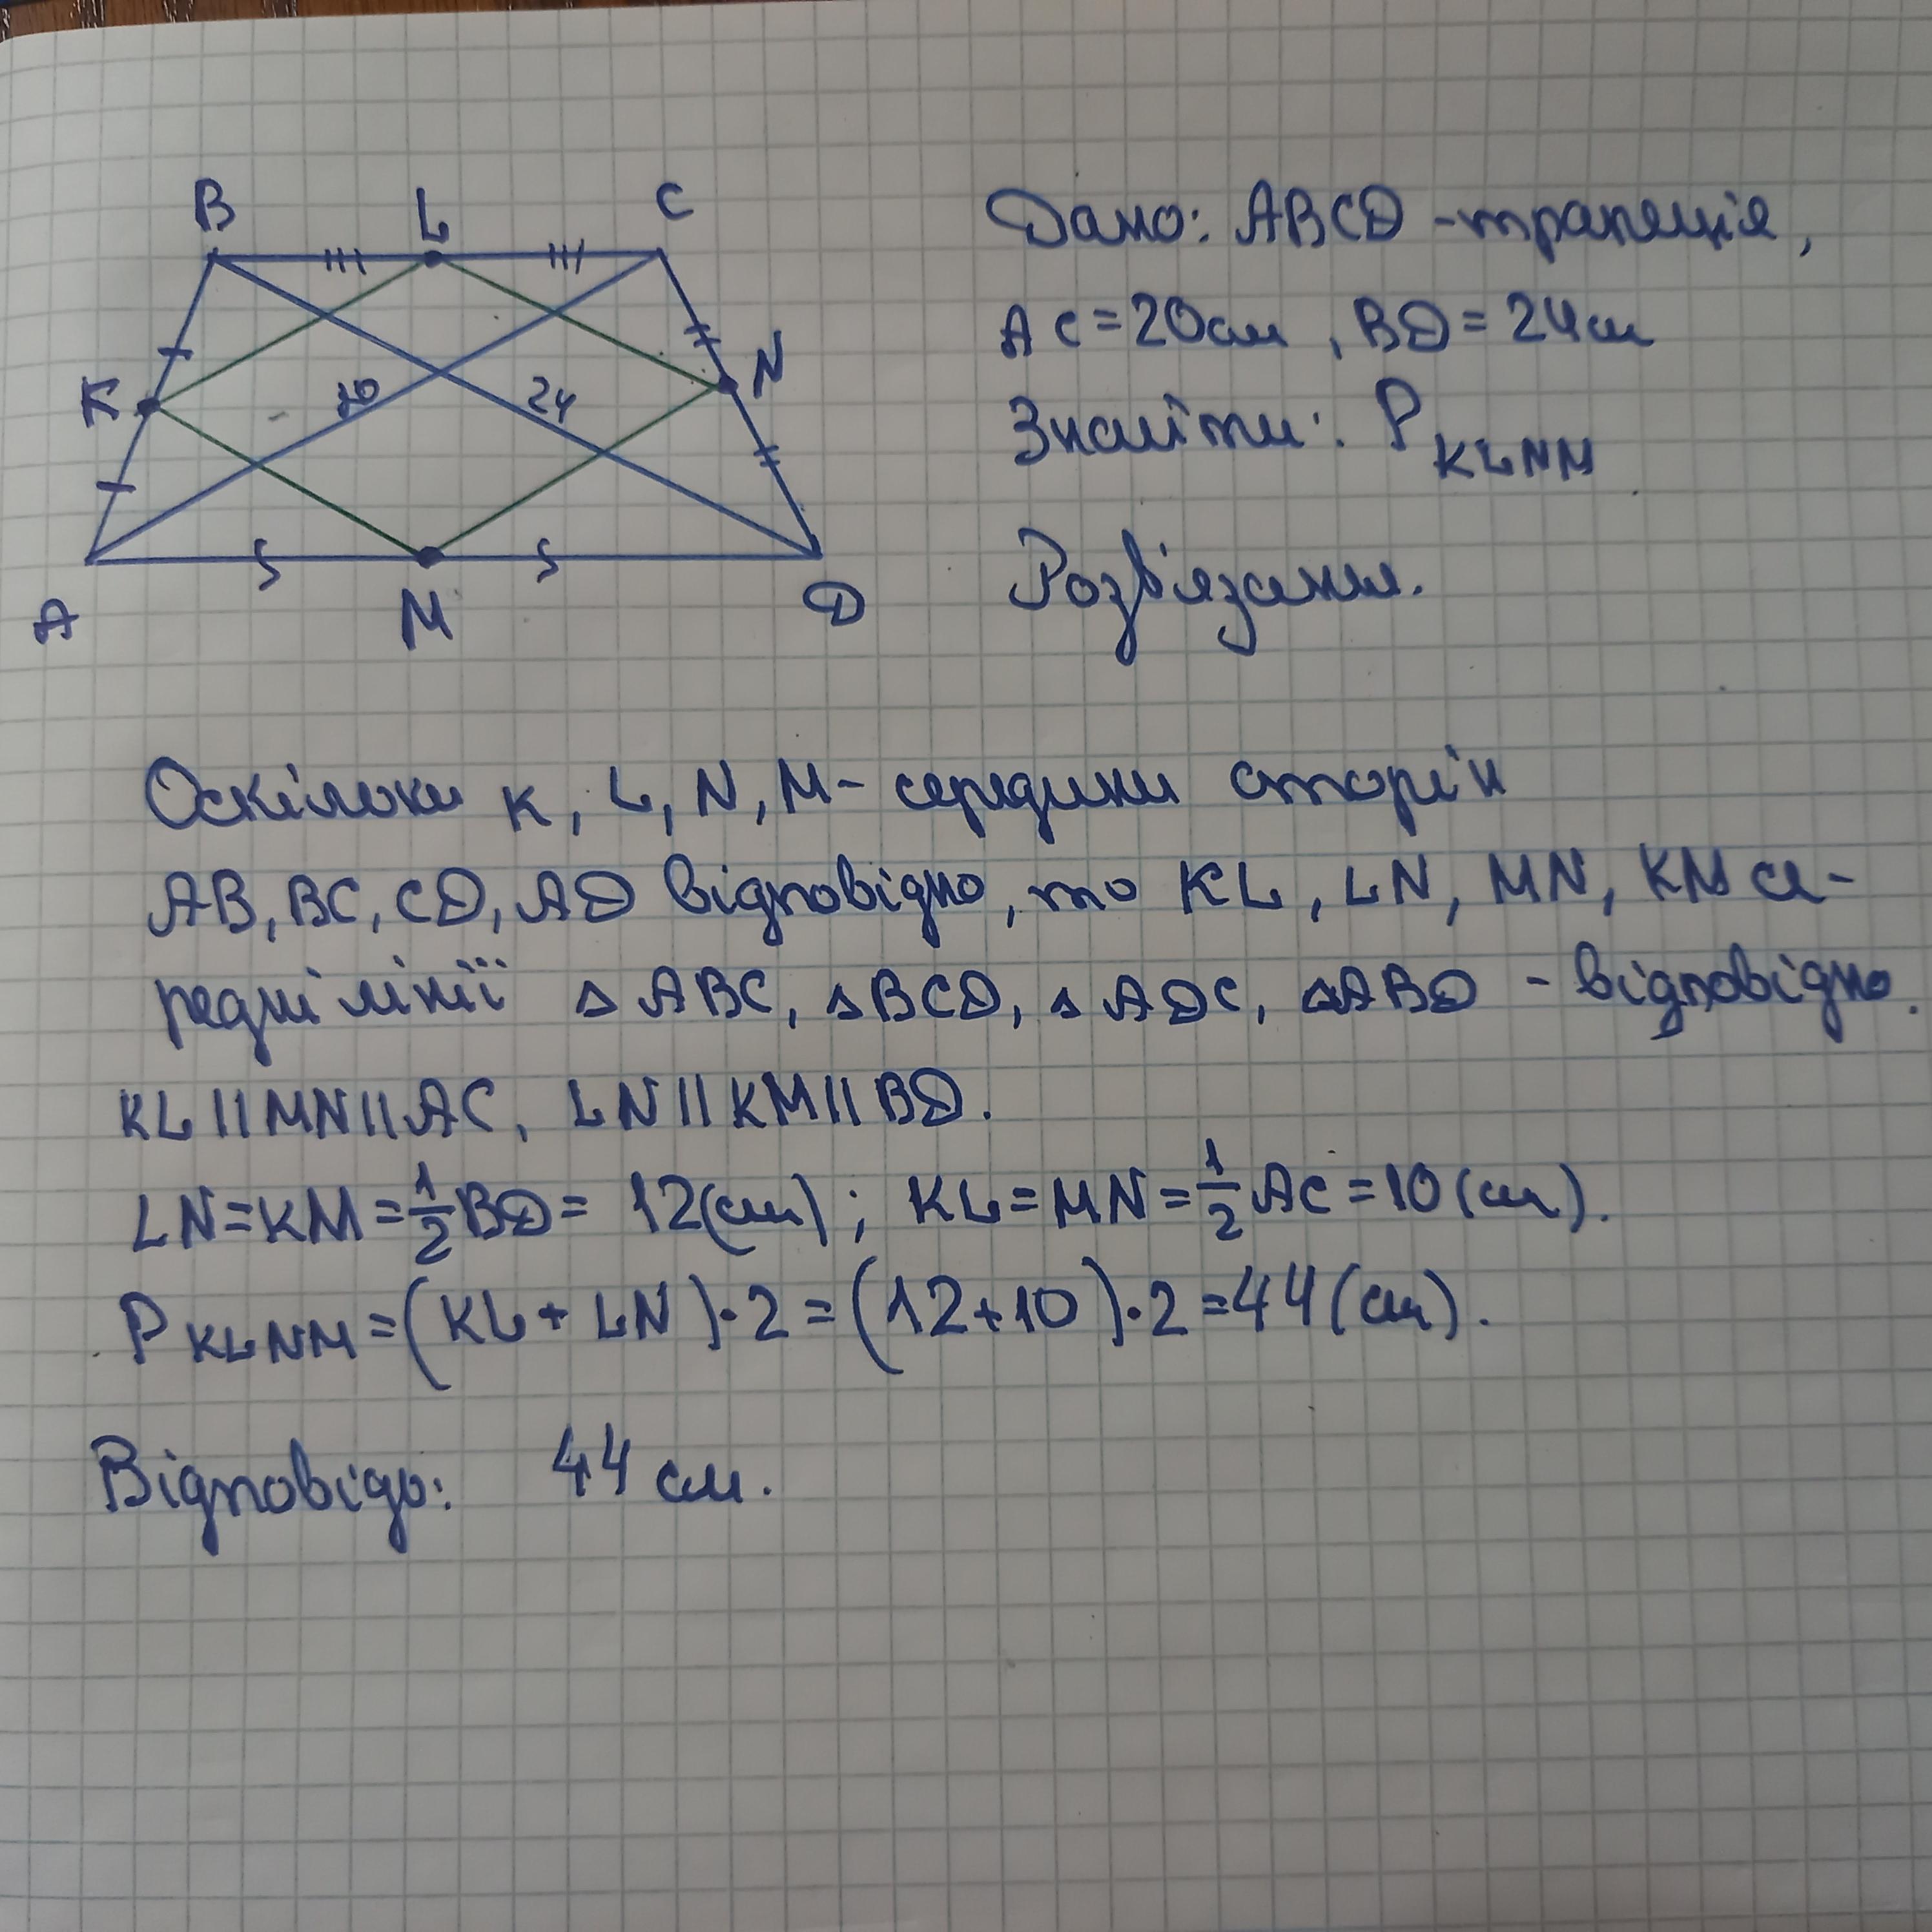 B L C
K 20 24 N
A M D
Дано: ABCD - трапеція,
AC = 20см, BD = 24см
Знайти: P KLNM
Розв'язання.
Оскільки K, L, N, M - середини сторін
AB, BC, CD, AD відповідно, то KL, LN, MN, KM се-
редні лінії △ ABC, △BCD, △ ADC, △ABD - відповідно.
KL || MN || AC, LN || KM || BD.
LN = KM = 1/2 BD = 12(см); KL = MN = 1/2 AC = 10 (см).
P KLNM = (KL + LN) · 2 = (12 + 10) · 2 = 44 (см).
Відповідь: 44 см.